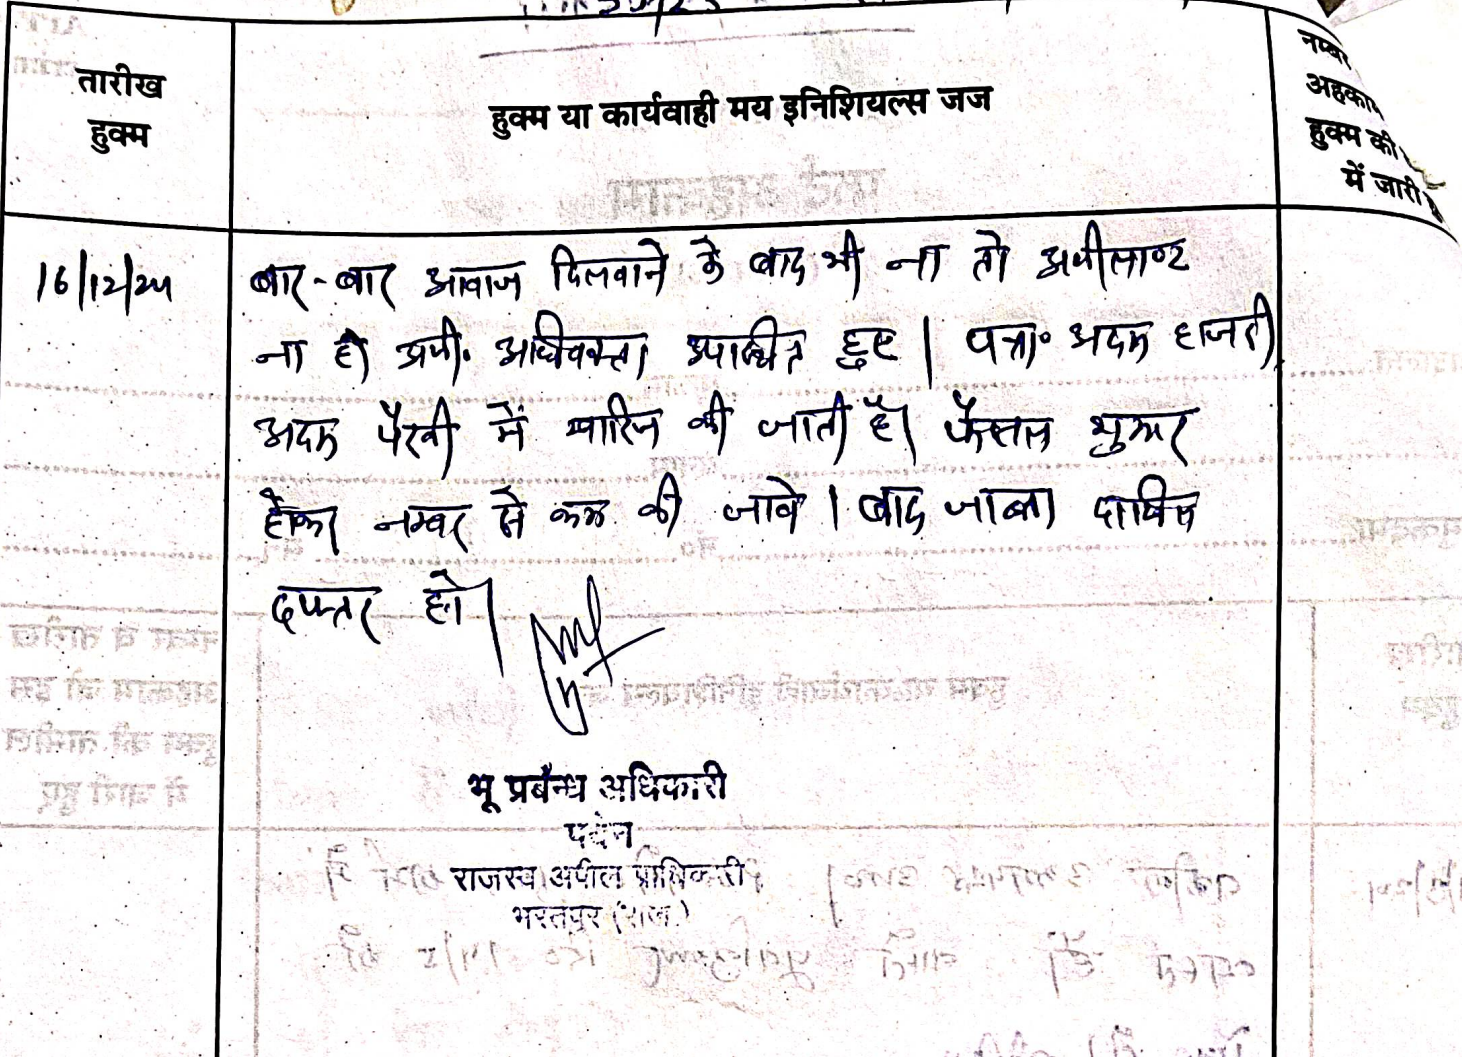 तारीख
हुक्म
हुक्म या कार्यवाही मय इनिशियल्स जज
नम्बर
अहकाम
हुक्म की
में जारी
16/12/24
बार-बार आवाज दिलवाने के बाद भी ना तो अपीलाण्ट
ना ही अपी. अधिवक्ता उपस्थित हुए। पत्रा॰ अदम हाजरी
अदम पैरवी में खारिज की जाती है। फैसल शुमार
होकर नम्बर से कम की जावे। बाद जाब्ता दाखिल
दफ्तर हो।
भू प्रबन्ध अधिकारी
पदेन
राजस्व अपील प्राधिकारी
भरतपुर (राज.)